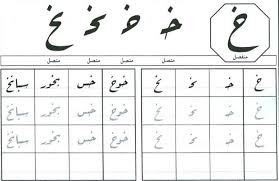 خ خـ خـ ـخـ ـخ
منفصل متصل متصل متصل متصل
خ خـ ـخـ ـخ خوخ خس بخور سبانخ
خ خـ ـخـ ـخ خوخ خس بخور سبانخ
خ خـ ـخـ ـخ خوخ خس بخور سبانخ